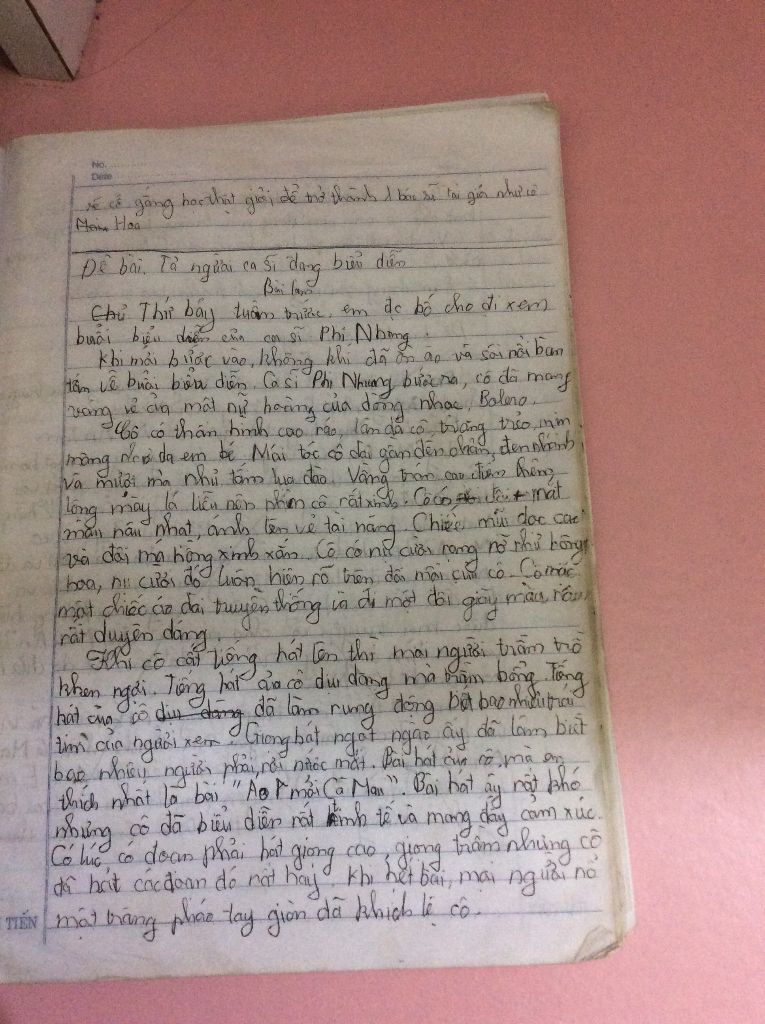 No.
Date
sẽ cố gắng học thật giỏi để trở thành 1 bác sĩ tài giỏi như cô
Hoa
Đề bài. Tả người ca sĩ đang biểu diễn
Bài làm
Chủ Thứ bảy tuần trước, em đc bố cho đi xem
buổi biểu diễn của ca sĩ Phi Nhung.
Khi mới bước vào, không khí đã ồn ào và sôi nổi bàn
tán về buổi biểu diễn. Ca sĩ Phi Nhung bước ra, cô đã mang
vẻ của một nữ hoàng của dòng nhạc, Bolero.
Cô có thân hình cao ráo, làn da cô, trắng trẻo, mịn
màng như da em bé Mái tóc cô dài gần đến chân, đen nhánh
và mượt mà như tấm lụa đào. Vầng trán cao điểm thêm
lông mày lá liễu nên nhìn cô rất xinh. Cô có mắt
màu nâu nhạt, ánh lên vẻ tài năng. Chiếc mũi dọc cao
và đôi má hồng xinh xắn. Cô có nụ cười rạng rỡ như bông
hoa, nụ cười đó luôn hiện rõ trên đôi môi của cô. Cô mặc
một chiếc áo dài truyền thống và đi một đôi giày màu nâu
rất duyên dáng.
Khi cô cất tiếng hát lên thì mọi người trầm trồ
khen ngợi. Tiếng hát của cô dịu dàng mà trầm bổng. Tiếng
hát của cô dịu dàng đã làm rung động biết bao nhiêu trái
tim của người xem. Giọng hát ngọt ngào ấy đã làm biết
bao nhiêu người phải, rơi nước mắt. Bài hát của cô, mà em
thích nhất là bài "Áo mới Cà Mau". Bài hát ấy rất khó
nhưng cô đã biểu diễn rất tinh tế và mang đầy cảm xúc.
Có lúc có đoạn phải hát giọng cao, giọng trầm nhưng cô
đã hát các đoạn đó rất hay. Khi hết bài, mọi người nổ
một tràng pháo tay giòn dã khích lệ cô.
TIẾN